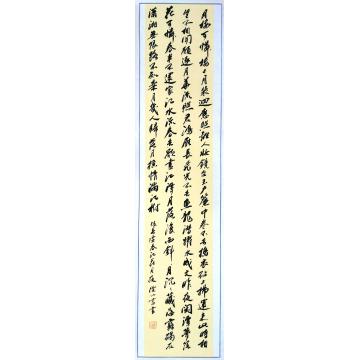 月樓可憐樓上月裴迴應照離人妝鏡台玉戶簾中卷不去搗衣砧上拂還來此時相
望不相聞願逐月華流照君鴻雁長飛光不度魚龍潛躍水成文昨夜閑潭夢落
花可憐春半不還家江水流春去欲盡江潭月落復西斜月沉沉藏海霧碣石
瀟湘無限路不知乘月幾人歸落月搖情滿江樹 張若虛春江花月夜 書